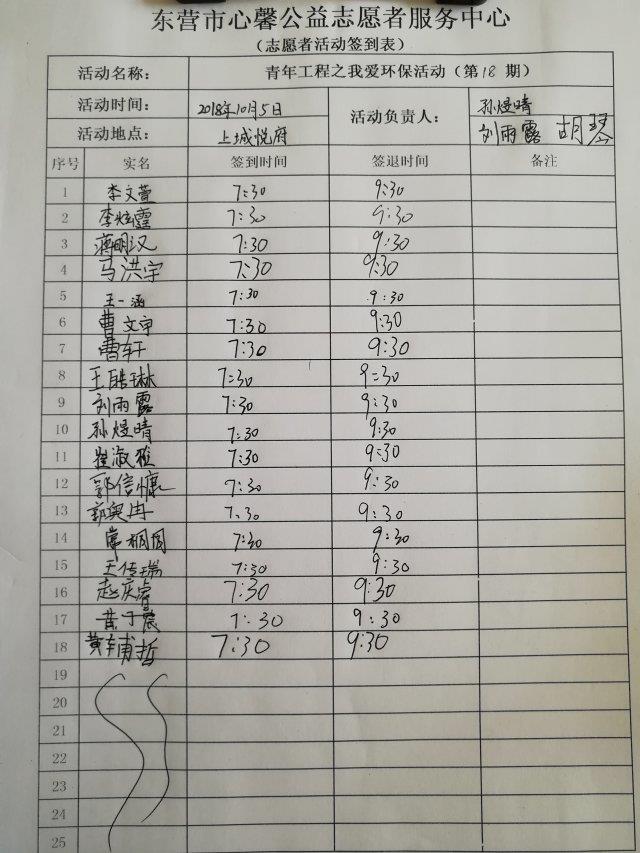 东营市心馨公益志愿者服务中心
(志愿者活动签到表)
活动名称： 青年工程之我爱环保活动（第18期）
活动时间： 2018年10月5日 活动负责人： 孙煜晴
活动地点： 上城悦府 刘雨露 胡琴
序号 实名 签到时间 签退时间 备注
1 李文萱 7:30 9:30
2 李炫霆 7:30 9:30
3 蒋明汉 7:30 9:30
4 马洪宇 7:30 9:30
5 王一涵 7:30 9:30
6 曹文宇 7:30 9:30
7 曹轩 7:30 9:30
8 王皓琳 7:30 9:30
9 刘雨露 7:30 9:30
10 孙煜晴 7:30 9:30
11 崔淑雅 7:30 9:30
12 郭信慷 7:30 9:30
13 郭奥冉 7:30 9:30
14 常桐闻 7:30 9:30
15 王传瑞 7:30 9:30
16 赵庆睿 7:30 9:30
17 黄子宸 7:30 9:30
18 黄辅哲 7:30 9:30
19
20
21
22
23
24
25